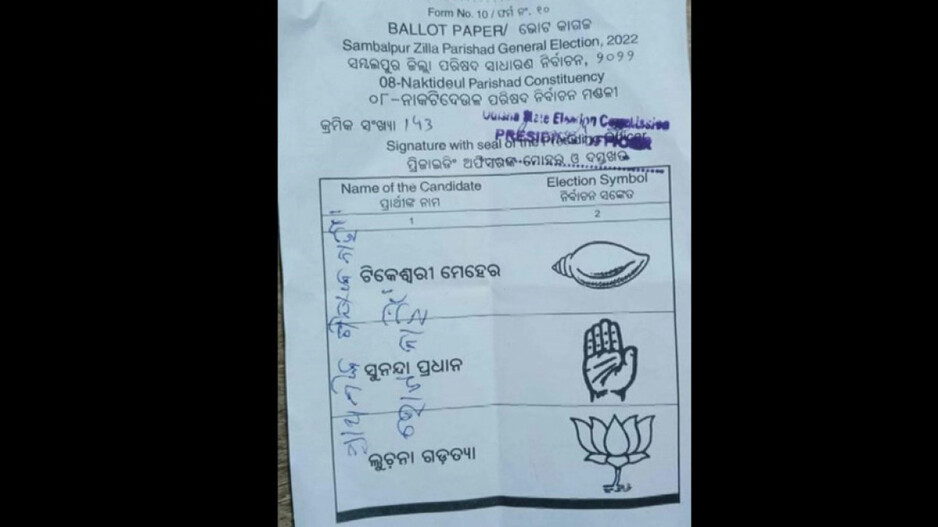 Form No. 10 / ଫର୍ମ ନଂ. ୧୦
BALLOT PAPER/ ଭୋଟ କାଗଜ
Sambalpur Zilla Parishad General Election, 2022
ସମ୍ବଲପୁର ଜିଲ୍ଲା ପରିଷଦ ସାଧାରଣ ନିର୍ବାଚନ, ୨୦୨୨
08-Naktideul Parishad Constituency
୦୮-ନାକଟିଦେଉଳ ପରିଷଦ ନିର୍ବାଚନ ମଣ୍ଡଳୀ
କ୍ରମିକ ସଂଖ୍ୟା 143
Odisha State Election Commission
PRESIDING OFFICER
Signature with seal of the Presiding Officer
ପ୍ରିଜାଇଡିଂ ଅଫିସରଙ୍କ ମୋହର ଓ ଦସ୍ତଖତ
Name of the Candidate Election Symbol
ପ୍ରାର୍ଥୀଙ୍କ ନାମ ନିର୍ବାଚନ ସଙ୍କେତ
1 2
ଟିକେଶ୍ୱରୀ ମେହେର
ସୁନନ୍ଦା ପ୍ରଧାନ
ଲୁଚନା ଗଡ଼ତ୍ୟା